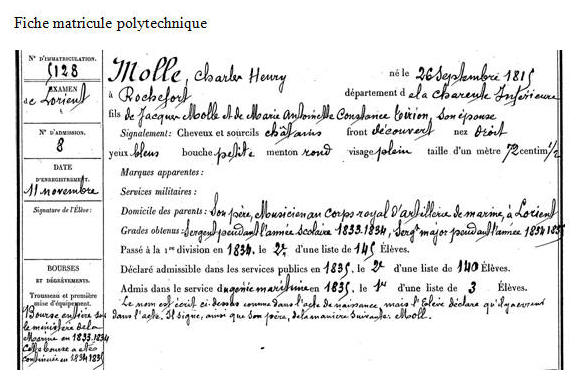 Fiche matricule polytechnique
N° D'IMMATRICULATION.
5128
EXAMEN
de Lorient
N° D'ADMISSION.
8
DATE
D'ENREGISTREMENT.
11 novembre
Signature de l'Élève:
BOURSES
ET DÉGRÈVEMENTS.
Trousseau et première
mise d'équipement.
Bourse entière par
le ministère de la
Marine en 1833-1834
Cette bourse a été
continuée en 1834 1835
Molle, Charles Henry né le 26 Septembre 1815
à Rochefort département de la Charente Inférieure
fils de Jacques Molle et de Marie Antoinette Constance Tirion, son épouse
Signalement: Cheveux et sourcils châtains front découvert nez droit
yeux bleus bouche petite menton rond visage plein taille d'un mètre 72 centim 1/2
Marques apparentes :
Services militaires :
Domicile des parents: Son père, Musicien au corps royal d'artillerie de marine, à Lorient
Grades obtenus: Sergent pendant l'année scolaire 1833-1834, Sergt major pendant l'année 1834 1835
Passé à la 1re division en 1834, le 2e d'une liste de 145 Élèves.
Déclaré admissible dans les services publics en 1835, le 2e d'une liste de 140 Élèves.
Admis dans le service du génie maritime en 1835, le 1er d'une liste de 3 Élèves.
Le nom est écrit ci-dessus comme dans l'acte de naissance mais l'Elève déclare qu'il y a erreur
dans l'acte. Il signe, ainsi que son père, de la manière suivante: Moll.